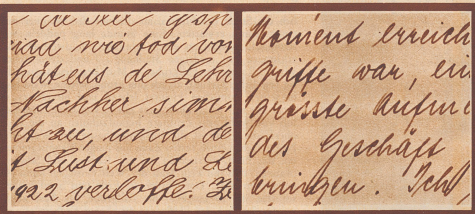 de
und wie tod vor
hät eus de Lehr
Nachher sim
ht zu, und de
t Lust und Le
1922 verloffe.
Moment erreich
griffe war, ein
grösste Aufm
des Geschäft
bringen. Ich